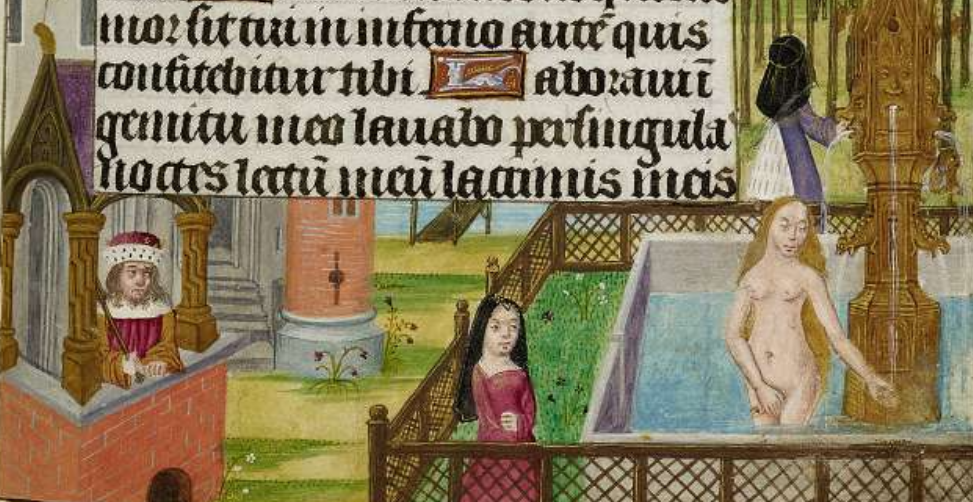 mor sit tui in inferno autē quis
confitebitur tibi. Laboraui ī
gemitu meo lauabo per singula
noctes lectū meū lacrimis meis